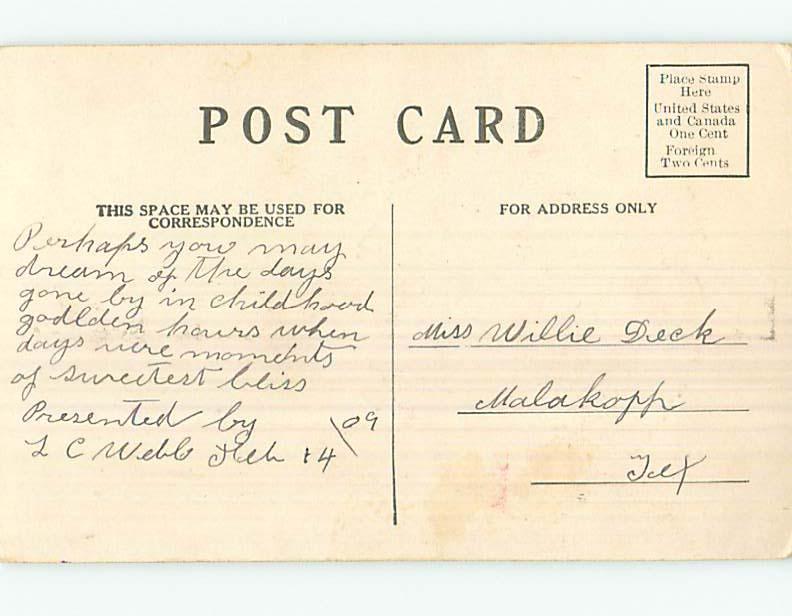 POST CARD
Place Stamp
Here
United States
and Canada
One Cent
Foreign
Two Cents
THIS SPACE MAY BE USED FOR
CORRESPONDENCE
Perhaps you may
dream of the days
gone by in childhood
godlden hours when
days were moments
of sweetest bliss
Presented by
L C Webb Feb 14 \09
FOR ADDRESS ONLY
Miss Willie Deck
Malakopp
Tex